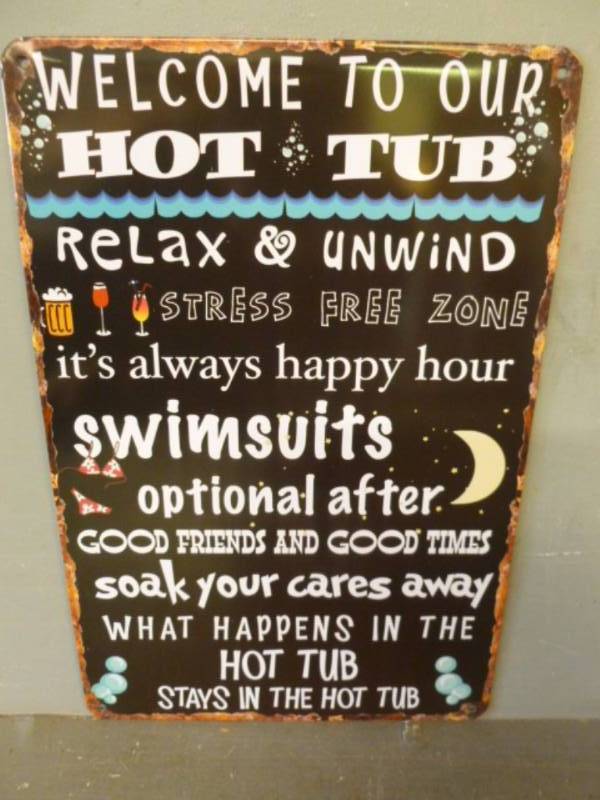 WELCOME TO OUR
HOT TUB
RELAX & UNWIND
STRESS FREE ZONE
it's always happy hour
swimsuits
optional after
GOOD FRIENDS AND GOOD TIMES
soak your cares away
WHAT HAPPENS IN THE
HOT TUB
STAYS IN THE HOT TUB